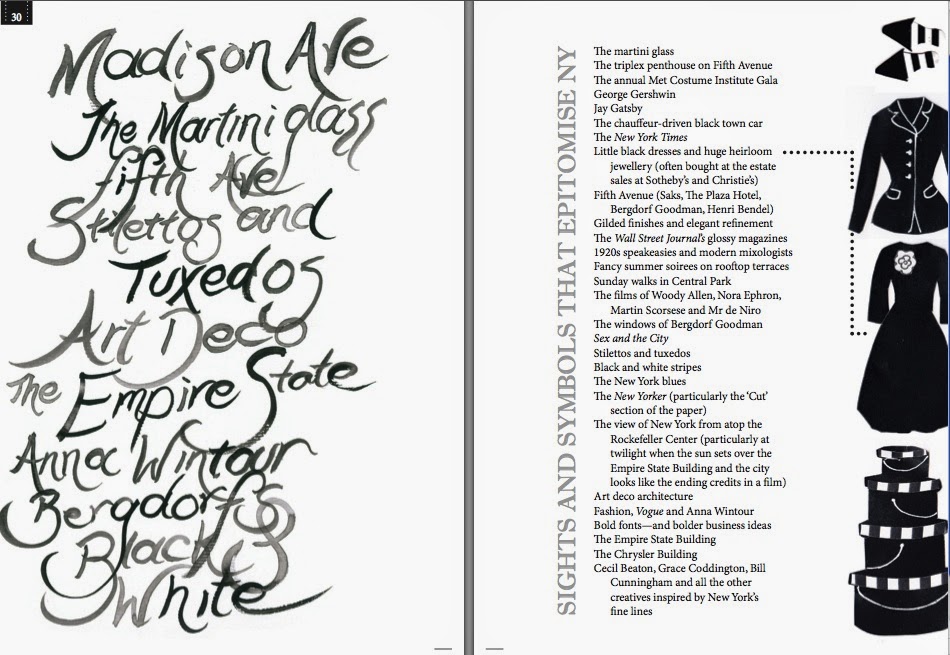 30
Madison Ave
The Martini glass
fifth Ave
Stilettos and
Tuxedos
Art Deco
The Empire State
Anna Wintour
Bergdorfs
Black &
White
SIGHTS AND SYMBOLS THAT EPITOMISE NY
The martini glass
The triplex penthouse on Fifth Avenue
The annual Met Costume Institute Gala
George Gershwin
Jay Gatsby
The chauffeur-driven black town car
The New York Times
Little black dresses and huge heirloom
jewellery (often bought at the estate
sales at Sotheby's and Christie's)
Fifth Avenue (Saks, The Plaza Hotel,
Bergdorf Goodman, Henri Bendel)
Gilded finishes and elegant refinement
The Wall Street Journal's glossy magazines
1920s speakeasies and modern mixologists
Fancy summer soirees on rooftop terraces
Sunday walks in Central Park
The films of Woody Allen, Nora Ephron,
Martin Scorsese and Mr de Niro
The windows of Bergdorf Goodman
Sex and the City
Stilettos and tuxedos
Black and white stripes
The New York blues
The New Yorker (particularly the 'Cut'
section of the paper)
The view of New York from atop the
Rockefeller Center (particularly at
twilight when the sun sets over the
Empire State Building and the city
looks like the ending credits in a film)
Art deco architecture
Fashion, Vogue and Anna Wintour
Bold fonts—and bolder business ideas
The Empire State Building
The Chrysler Building
Cecil Beaton, Grace Coddington, Bill
Cunningham and all the other
creatives inspired by New York's
fine lines